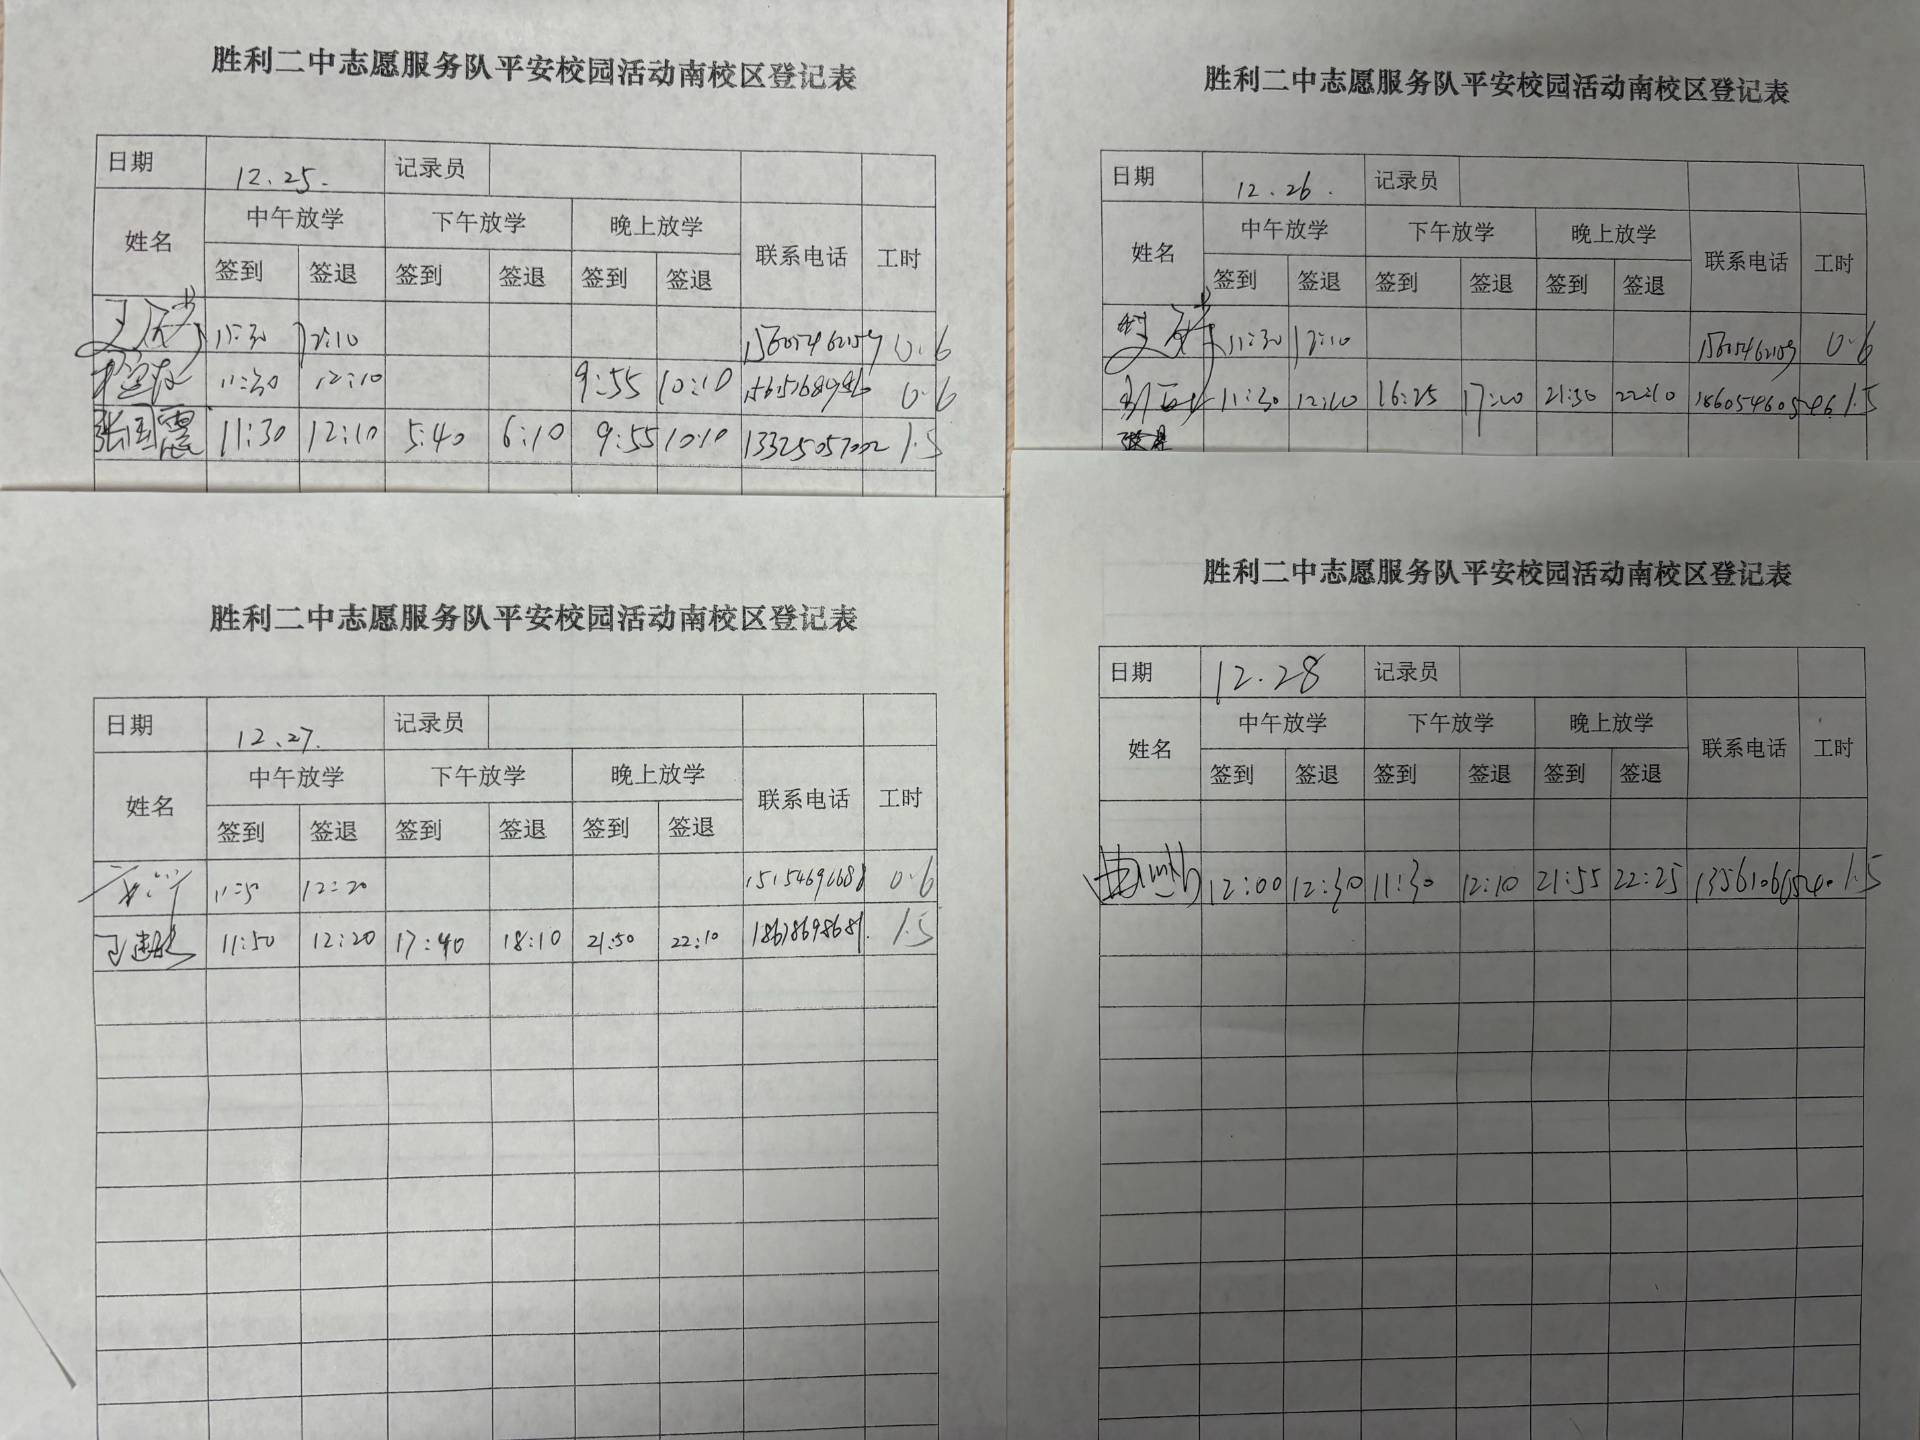 胜利二中志愿服务队平安校园活动南校区登记表
日期 12.25. 记录员
姓名 中午放学 下午放学 晚上放学 联系电话 工时
签到 签退 签到 签退 签到 签退
11:30 12:10 0.6
11:30 12:10 9:55 10:10 0.6
张国震 11:30 12:10 5:40 6:10 9:55 10:10 13325057002 1.5
胜利二中志愿服务队平安校园活动南校区登记表
日期 12.26. 记录员
姓名 中午放学 下午放学 晚上放学 联系电话 工时
签到 签退 签到 签退 签到 签退
11:30 12:10 0.6
11:30 12:10 16:25 17:00 21:50 22:10 1.5
胜利二中志愿服务队平安校园活动南校区登记表
日期 12.27. 记录员
姓名 中午放学 下午放学 晚上放学 联系电话 工时
签到 签退 签到 签退 签到 签退
12:20 0.6
11:50 12:20 17:40 18:10 21:50 22:10 18678698681. 1.5
胜利二中志愿服务队平安校园活动南校区登记表
日期 12.28 记录员
姓名 中午放学 下午放学 晚上放学 联系电话 工时
签到 签退 签到 签退 签到 签退
12:00 12:30 11:30 12:10 21:55 22:25 1.5